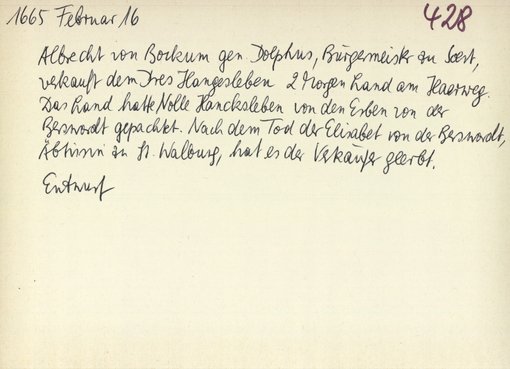 1665 Februar 16
428
Albrecht von Bockum gen Dolphus, Bürgermeister zu Soest,
verkauft dem Dres Hangesleben 2 Morgen Land am Haarweg.
Das Land hatte Nolle Hancksleben von den Erben von der
Berswordt gepachtet. Nach dem Tod der Elisabet von der Berswordt,
Äbtissin zu St. Walburg, hat es der Verkäufer geerbt.
Entwurf